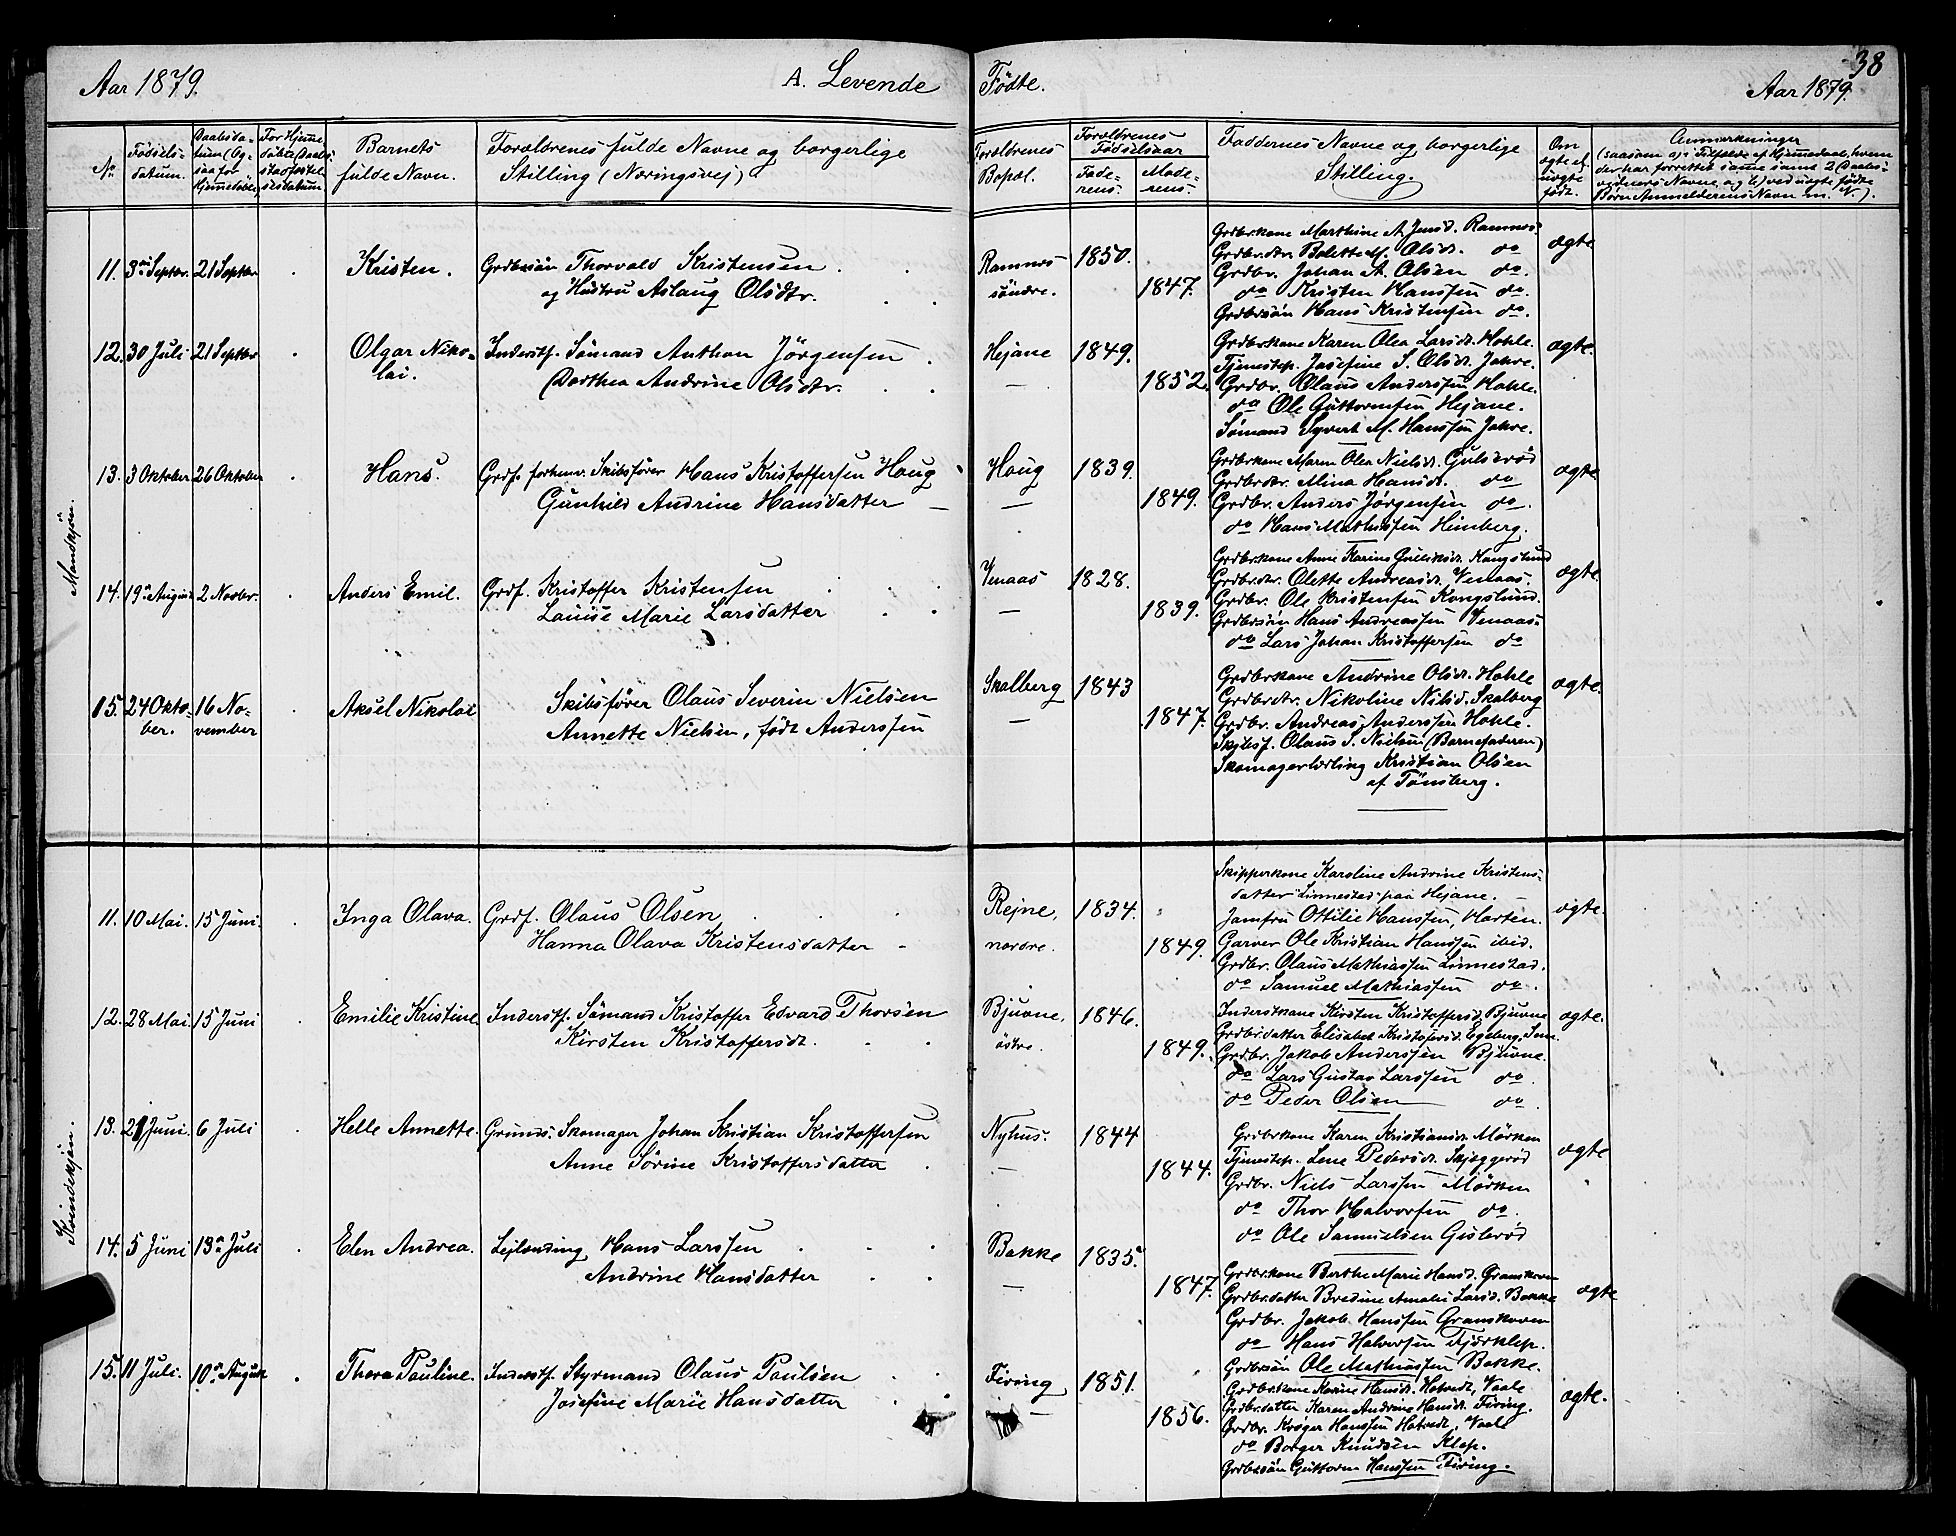 38
Aar 1879. A. Levende Födte. Aar 1879.
No. Födsels-datum. Daabsdatum (Og-saa for Hjemmedöbte). For Hjemmedöbte Daabsstadfæstelsesdatum. Barnets fulde Navn. Forældrenes fulde Navne og borgerlige Stilling (Næringsvej) Forældrenes Bopæl. Forældrenes Födselsaar Fade-rens. Mode-rens. Faddernes Navne og borgerlige Stilling. Om ægte el. uægte født. Anmærkninger
Mandkjön.
11. 3die Septbr. 21 Septbr Kristen. Grdbrsön Thorvald Kristensen
og Hustru Aslaug Olsdtr.
Ramnes söndre. 1850. 1847.
Grdbrkone Marthine A. Jensd. Ramnes
Grdbr.dtr. Bolette M. Olsdt. do
Grdbr. Johan A. Olsen do.
do Kristen Hanssen do.
Grdbrsön Hans Kristensen do.
ægte
12. 30 Juli 21 Septbr Olgar Niko-
lai.
Inderstf. Sömand Anthon Jörgensen
Dorthea Andrine Olsdtr.
Hejane — 1849. 1852.
Grdbrkone Karen Olea Larsdt. Hohle.
Tjenestep. Josefine S. Olsdt. Jahre.
Grdbr. Olaus Anderssen Hohle.
do Ole Guttormsen Hejane.
Sömand Syvert M. Hanssen Jahre.
ægte.
13. 3 Oktober 26 Oktober Hans. Grdf. forhenv. Skibsförer Hans Kristoffersen Haug
Gunhild Andrine Hansdatter —
Haug — 1839. 1849.
Grdbrkone Maren Olea Nielsdt. Gulsrød
Grdbrdtr. Alina Hansdt. do
Grdbr. Anders Jörgensen do.
do Hans Mathissen Himberg.
ægte
14. 19de August 2 Novbr. Anders Emil. Grdf. Kristoffer Kristensen
Louise Marie Larsdatter
Venaas — 1828. 1839.
Grdbrkone Anne Karine Gulliksdt. Kongslund
Grdbr.dtr. Olette Andreasdt. Venaas.
Grdbr. Ole Kristensen Kongslund.
Grdbrsön Hans Andreassen Venaas.
do Lars Johan Kristoffersen do
ægte.
15. 24 Okto-
ber. 16 No-
vember Aksel Nikolai Skibsförer Olaus Severin Nielsen
Annette Nielsen, födt Anderssen
Skalberg — 1843 1847.
Grdbrkone Andrine Olsdt. Hohle
Grdbrdtr. Nikoline Nilsd. Skalberg
Grdbr. Andreas Anderssen Hohle.
Skibsf. Olaus S. Nielsen (Barnefaderen)
Skomagerlærling Kristian Olsen
af Tönsberg.
ægte.
Kvindekjön.
11. 10 Mai. 15 Juni. Inga Olava. Grdf. Olaus Olsen
Hanna Olava Kristensdatter
Rejne, nordre. 1834. 1849.
Skipperkone Karoline Andrine Kristens-
datter Linnestad paa Hejane.
Jomfru Ottilie Hanssen, Horten.
Garver Ole Kristian Hanssen ibid.
Grdbr. Olaus Mathiassen Linnestad.
do Samuel Mathiassen do.
ægte.
12. 28 Mai 15 Juni Emilie Kristine. Inderstf. Sömand Kristoffer Edvard Thorsen
Kirsten Kristoffersdt.
Bjuvne, östre. 1846. 1849.
Inderstkone Kirsten Kristoffersd. Bjuvne
Grdbrdatter Elisabet Kristofersd. Egeberg, Sem
Grdbr. Jakob Anderssen Bjuvne.
do Lars Gustav Larssen do.
do Peder Olsen do.
ægte.
13. 21 Juni. 6 Juli Helle Annette. Grunds. Skomager Johan Kristian Kristoffersen
Anne Sörine Kristoffersdatter
Nyhus. — 1844 1844.
Grdbrkone Karen Kristiansdt. Mörken
Tjenestep. Lene Pedersdt. Skjeggeröd
Grdbr. Niels Larssen Mörken
do Thor Halvorsen do.
do Ole Samuelsen Gisleröd
ægte
14. 5 Juni 13de Juli Elen Andrea. Lejlænding Hans Larssen
Andrine Hansdatter
Bakke — 1835. 1847.
Grdbrkone Berthe Marie Hansd. Granskoven
Grdbrdatter Bredine Amalie Larsd. Bakke
Grdbr. Jakob Hanssen Granskoven
do Hans Halvorsen Fjærklep.
Grdbrsön Ole Mathiassen Bakke.
ægte
15. 11 Juli. 10de August Thora Pauline. Inderstf. Styrmand Olaus Paulsen
Josefine Marie Hansdatter
Firing — 1851. 1856.
Grdbrkone Karine Hansdt. Hotvedt, Vaale
Grdbrdatter Karen Andrine Hansdt. Firing.
Grdbr. Kröger Hanssen Hotvedt, Vaale
do Borger Knudsen Klep.
Grdbrsön Guttorm Hanssen Firing.
ægte.